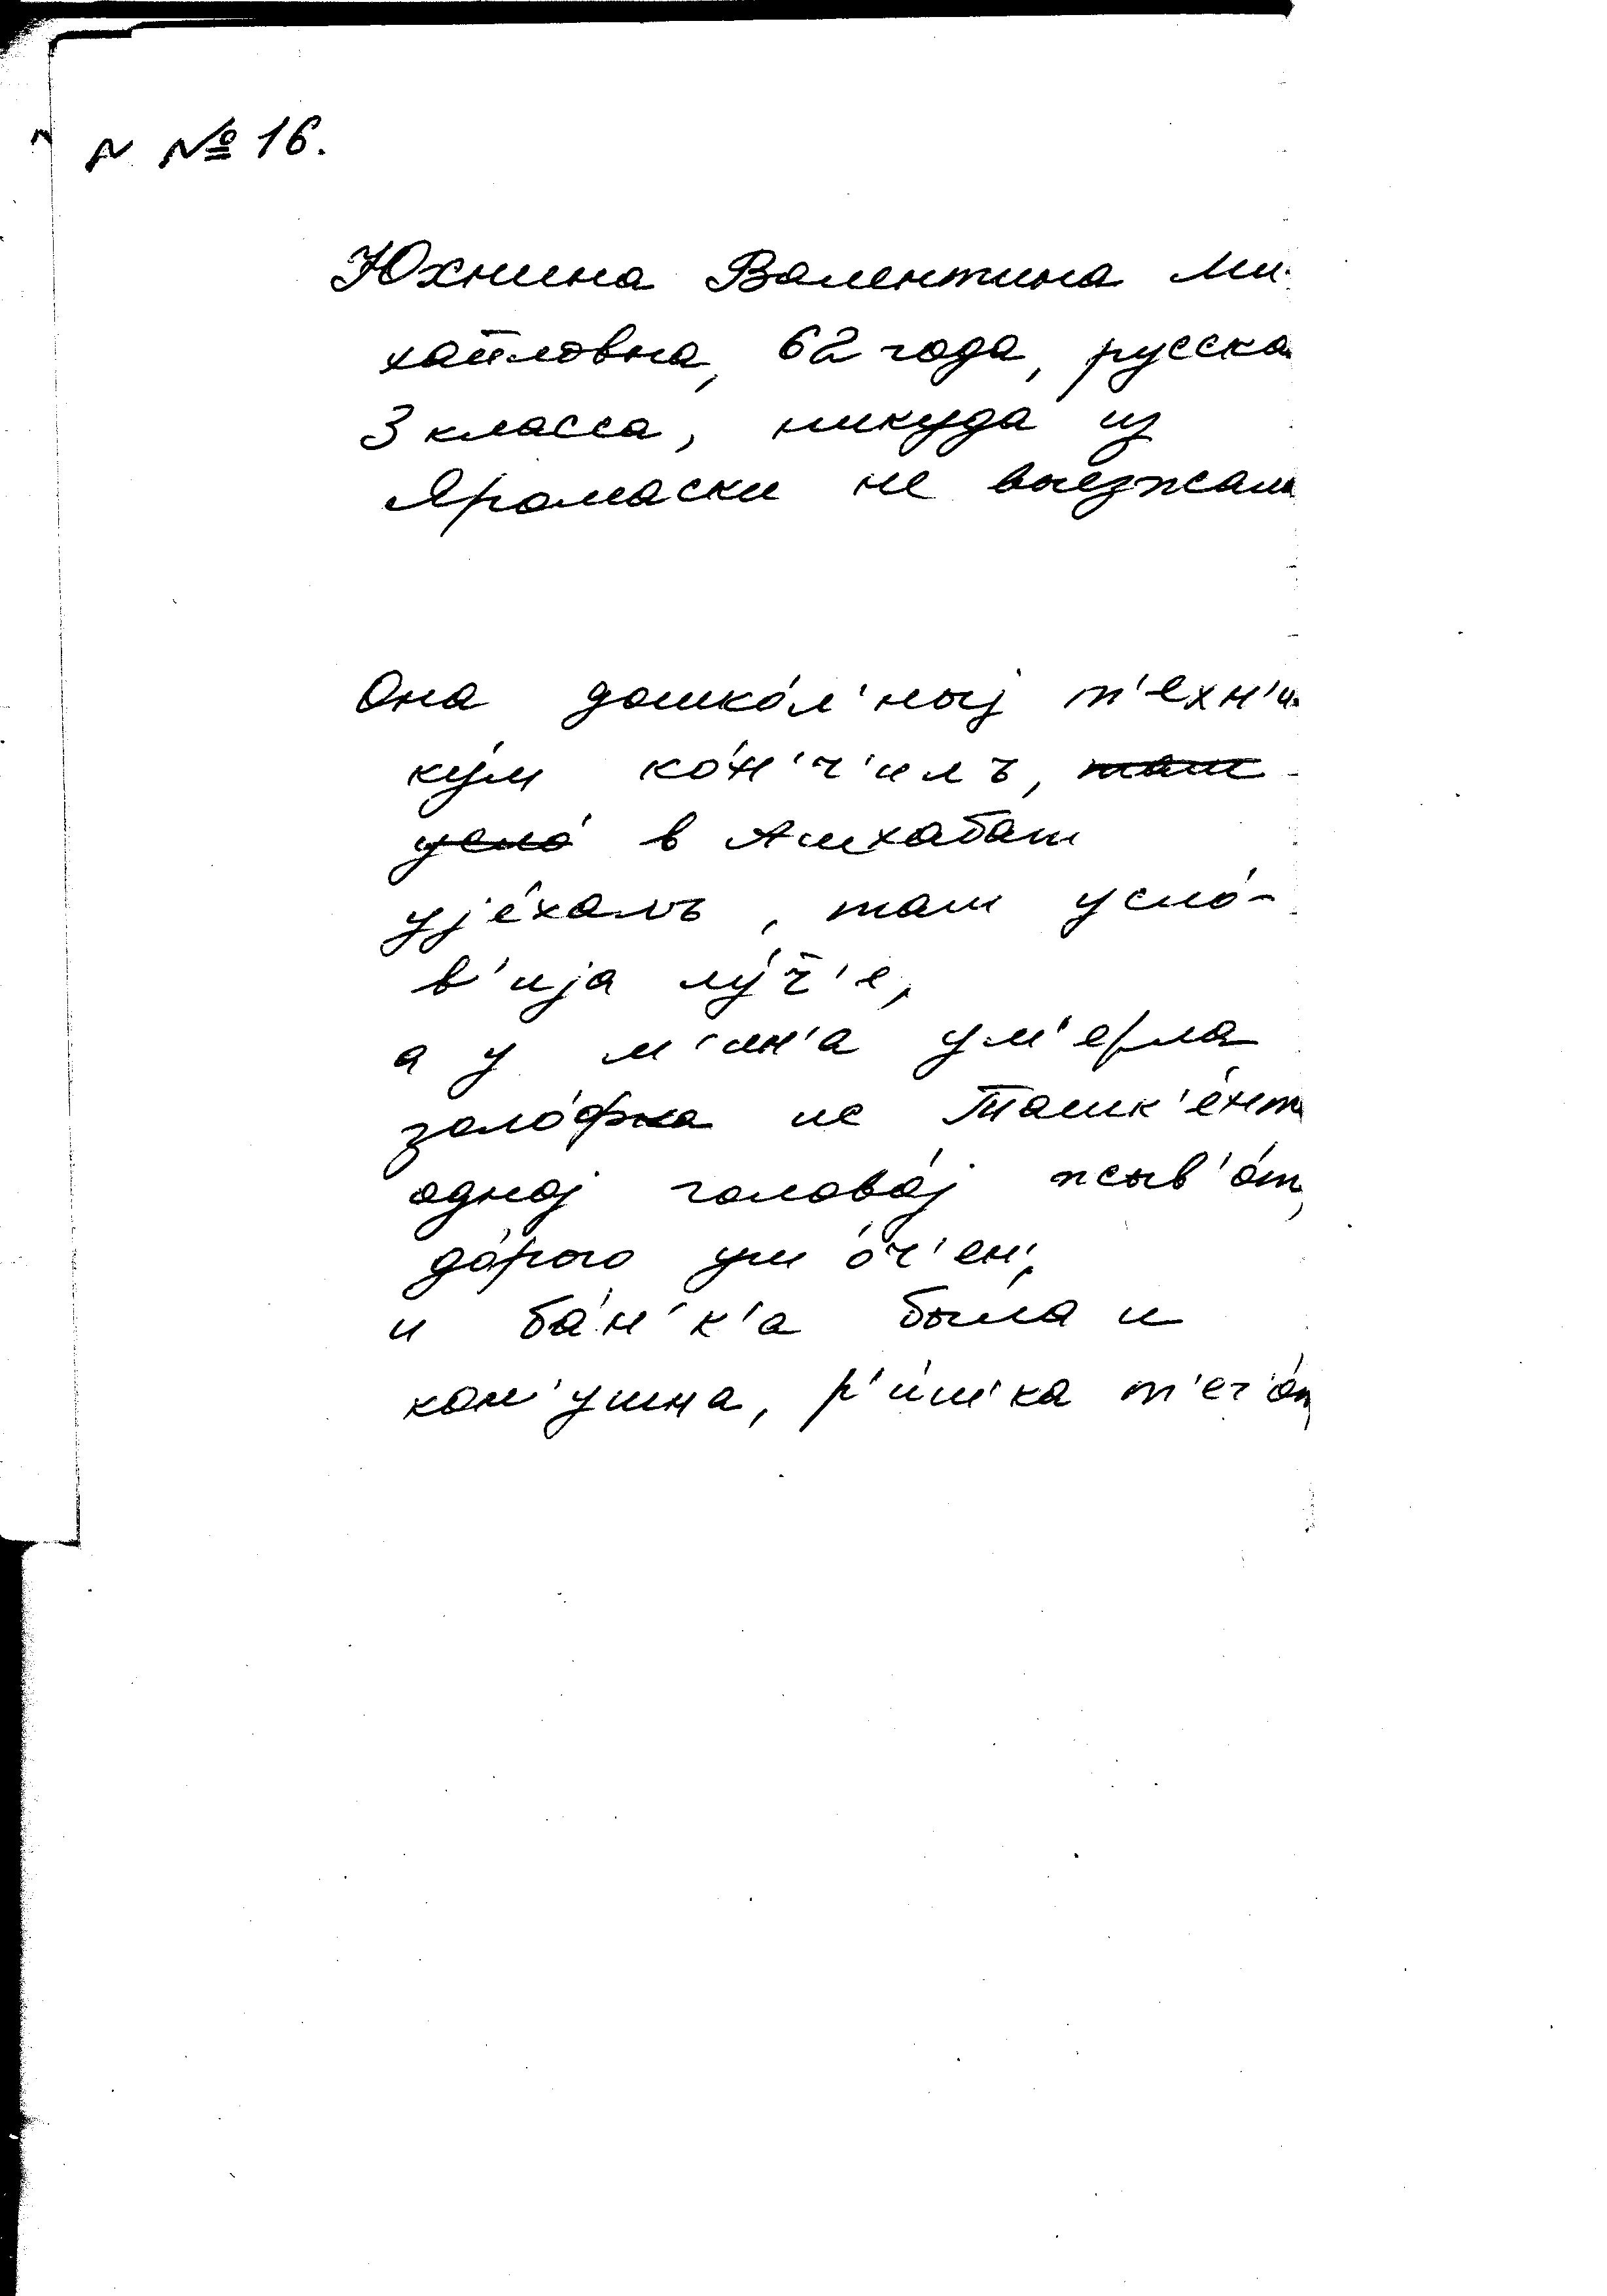 N №16.
Юхнина Валентина Ми-
хайловна, 62 года, русска
3 класса, никуда из
Яромаски не выезжала
Она дошко́л'ныj т'ехн'и-
ку́м ко́н'ч'илъ, там
усло́ в Ашхабат
уjе́халъ, там усло́-
в'иjа лу́ч̄'е,
а у м'ин'а ум'ерла
золо́фка ис Ташк'е́нт
одноj голово́j жыв'о́т,
до́рого уш о́ч'ен',
и ба́н'к'а была и
кон'ушна, р'и́ш'ка т'еч'о́т